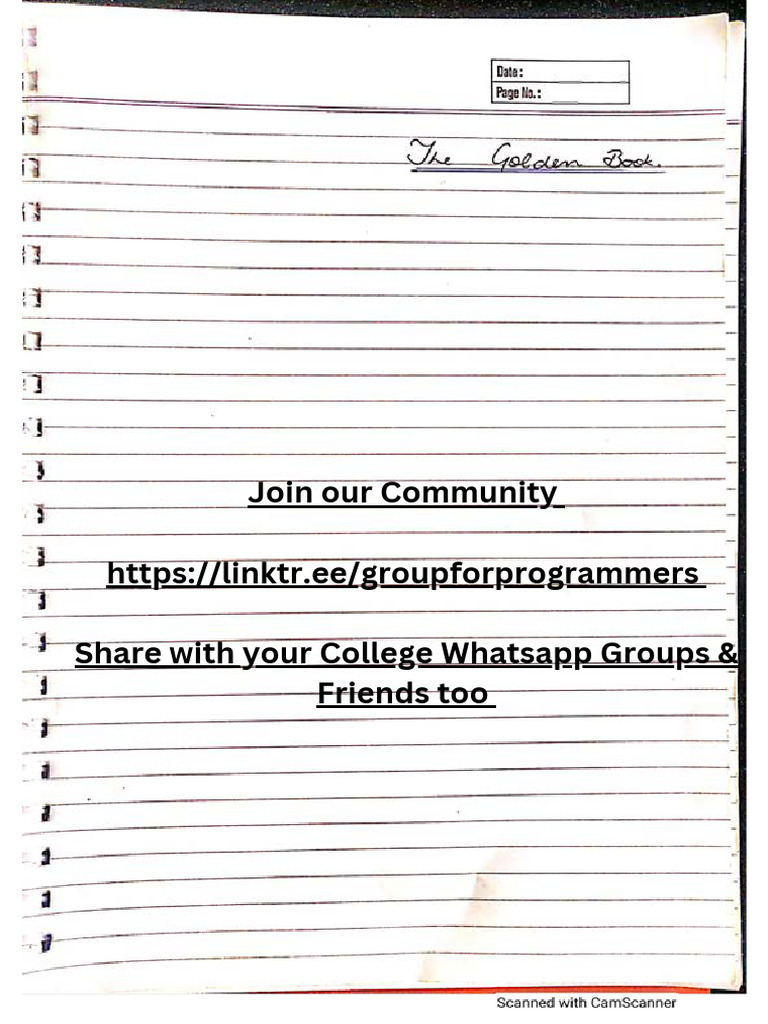 Date:
Page No.:
The Golden Book.
Join our Community
https://linktr.ee/groupforprogrammers
Share with your College Whatsapp Groups &
Friends too
Scanned with CamScanner